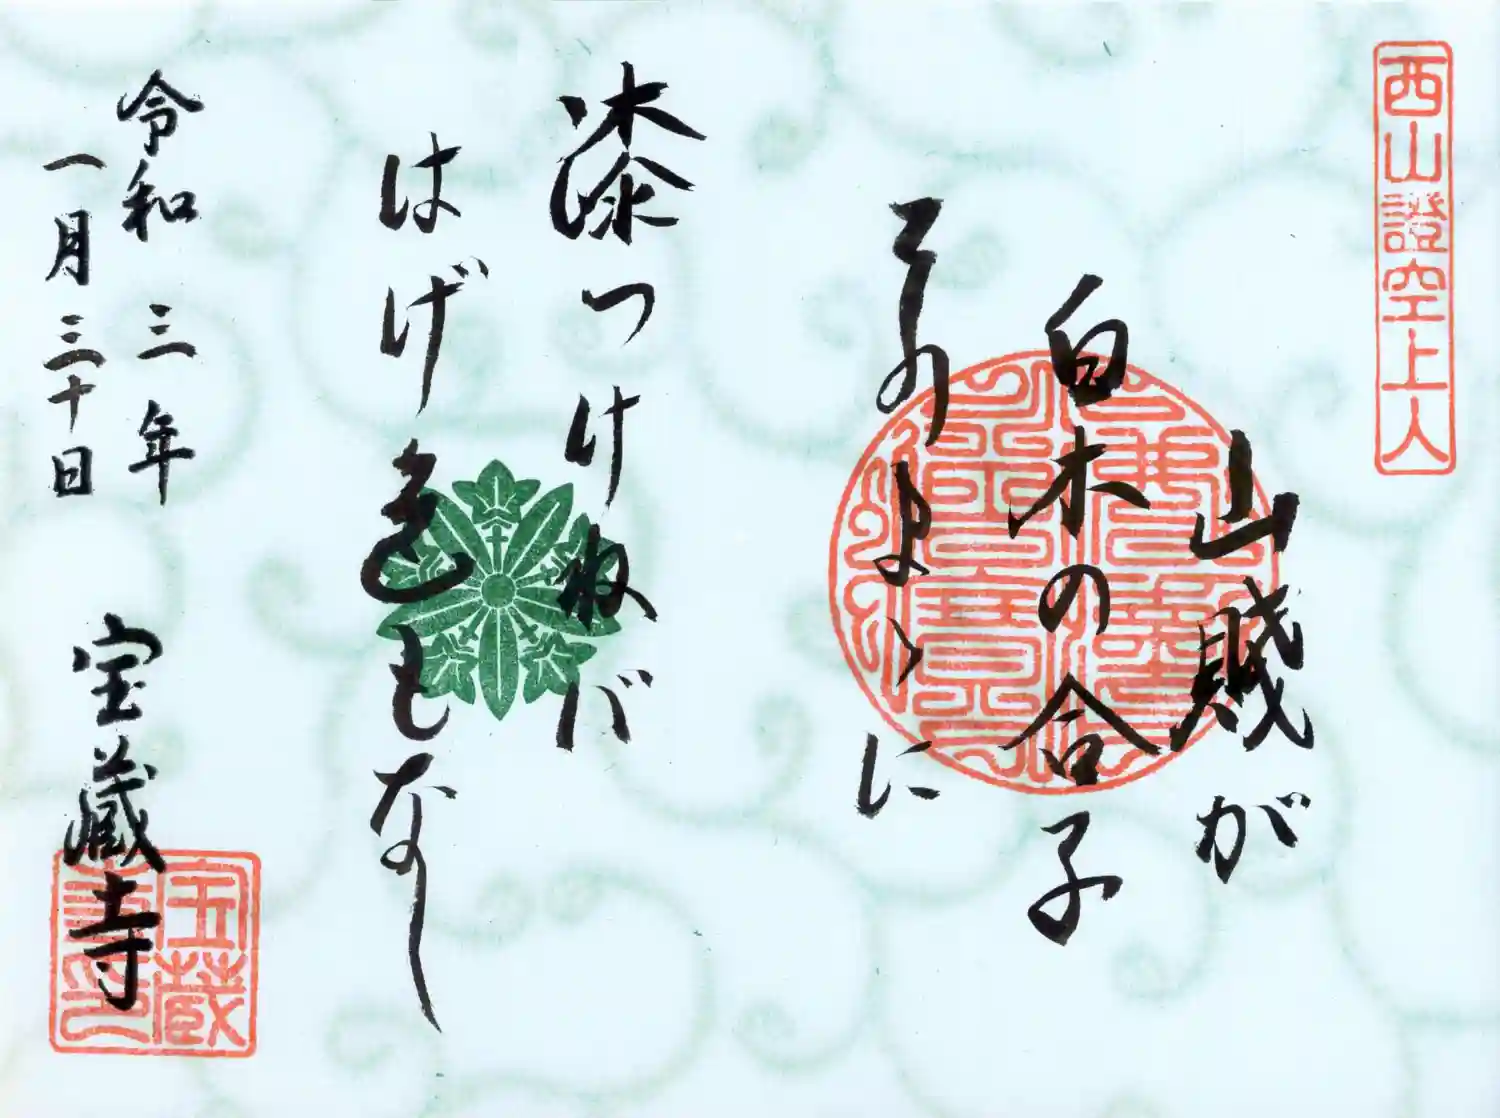 西山證空上人
山賤が
白木の合子
そのまゝに
漆つけねば
はげ色もなし
令和三年
一月三十日
宝蔵寺
宝蔵
寺印